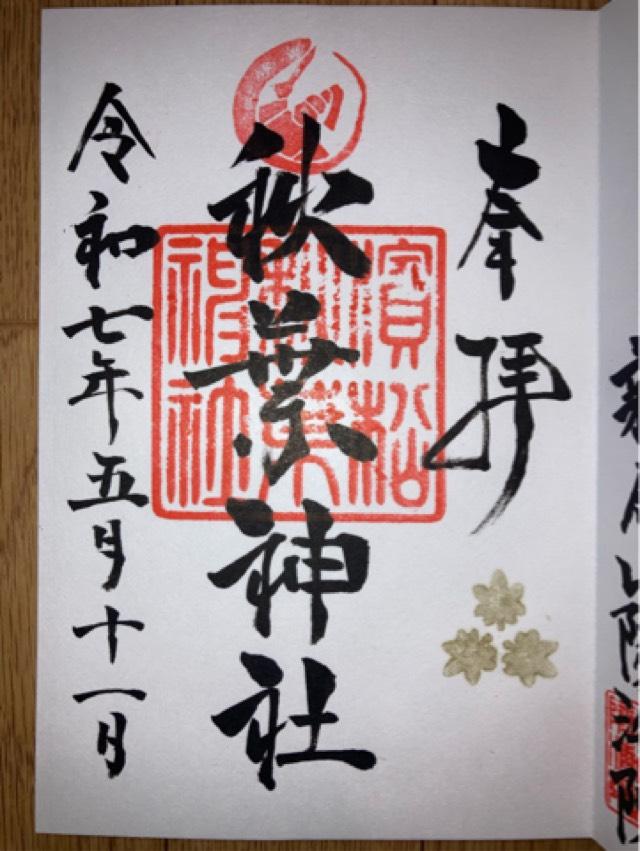 奉拝
秋葉神社
濱松
秋葉
神社
令和七年五月十一日